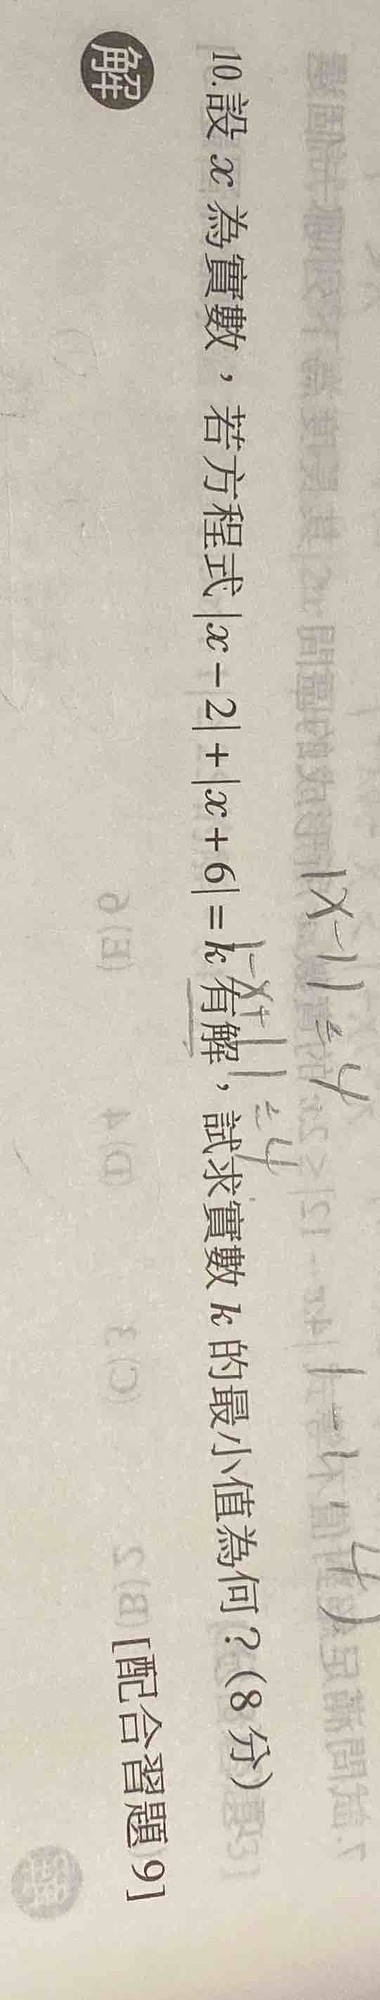 |x-1|=4
10.設 x 為實數，若方程式|x－2|＋|x＋6|＝k 有解，試求實數 k 的最小值為何？(8 分)
|-x+1|=4
[配合習題 9]
解